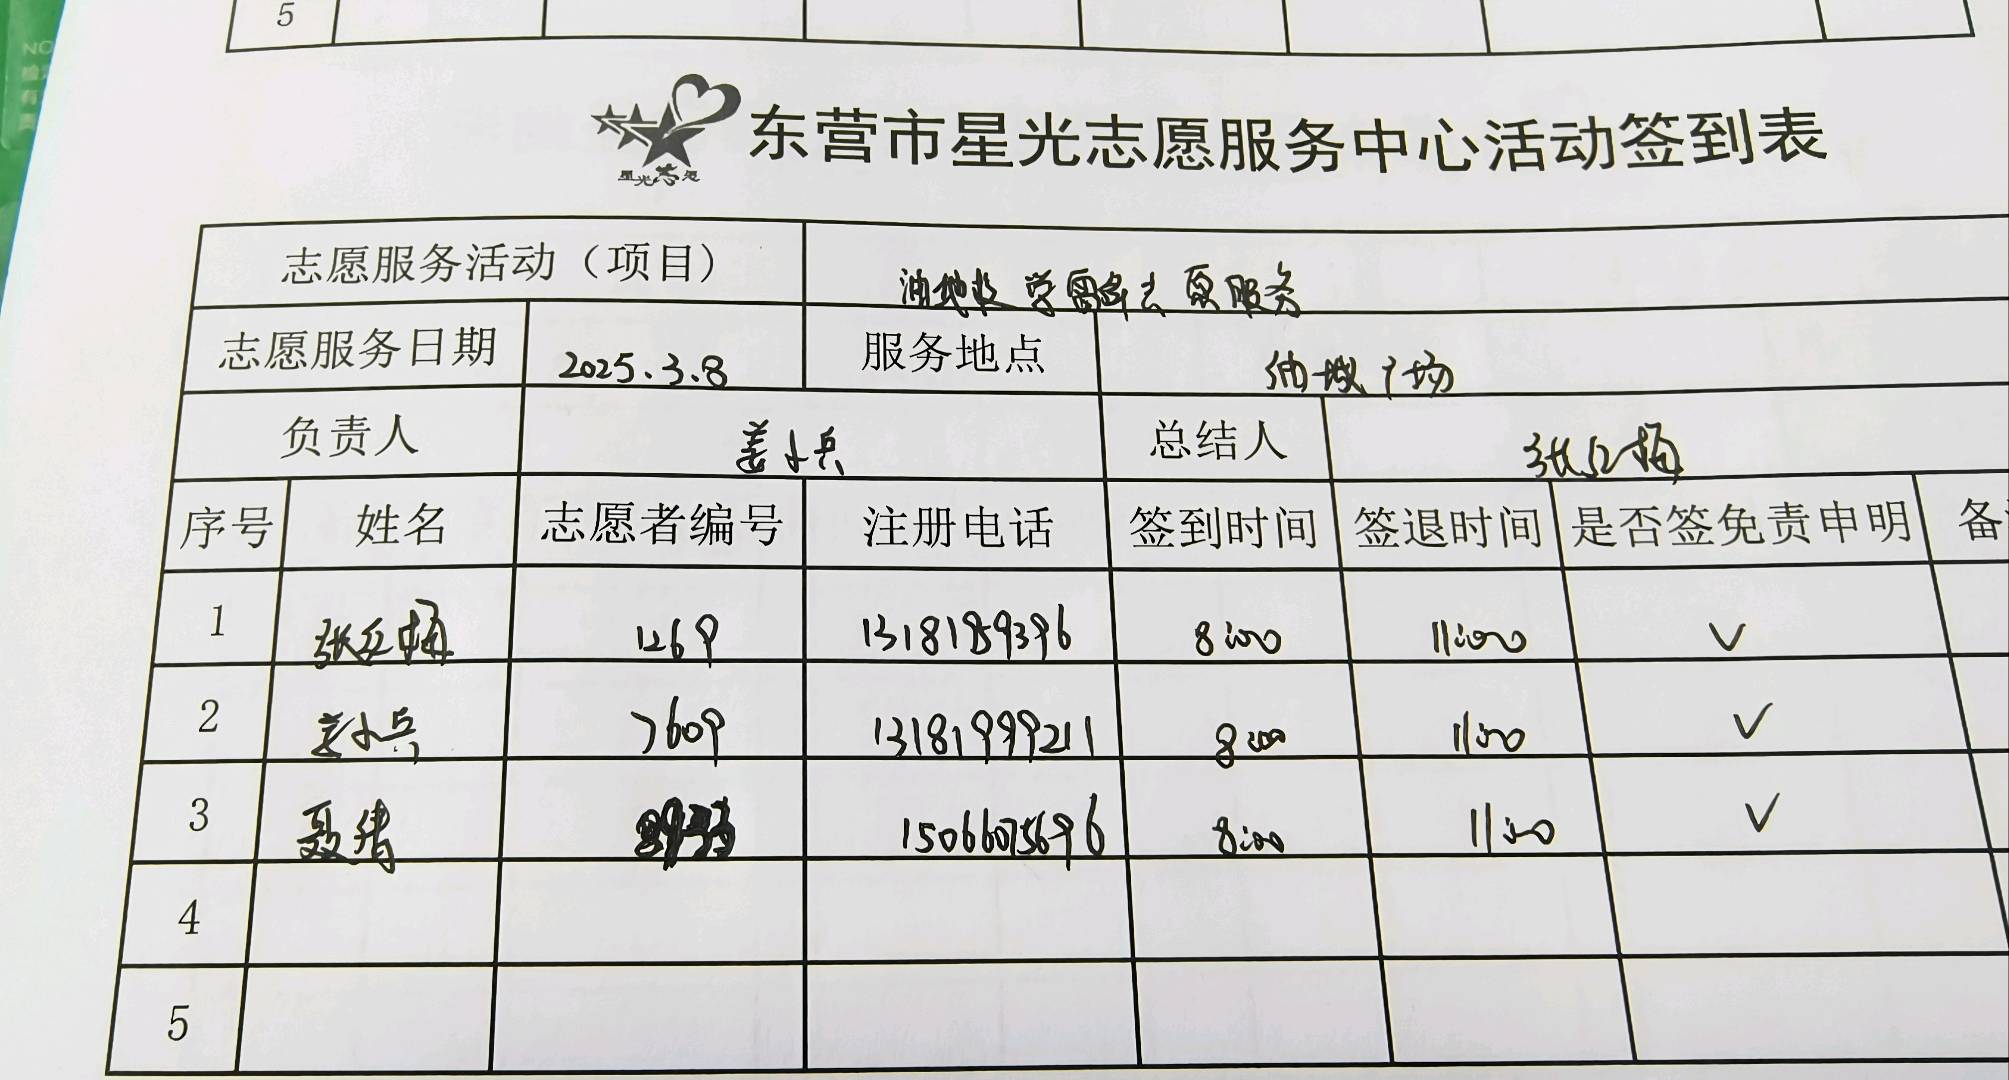 5
星光志愿
东营市星光志愿服务中心活动签到表
志愿服务活动（项目) 油地校学雷锋志愿服务
志愿服务日期 2025.3.8 服务地点 油城广场
负责人 姜小兵 总结人 张红梅
序号 姓名 志愿者编号 注册电话 签到时间 签退时间 是否签免责申明 备
1 张红梅 1269 13181859396 8:00 11:00 ✓
2 姜小兵 7609 13181999211 8:00 11:00 ✓
3 聂绪 15066075696 8:00 11:00 ✓
4
5